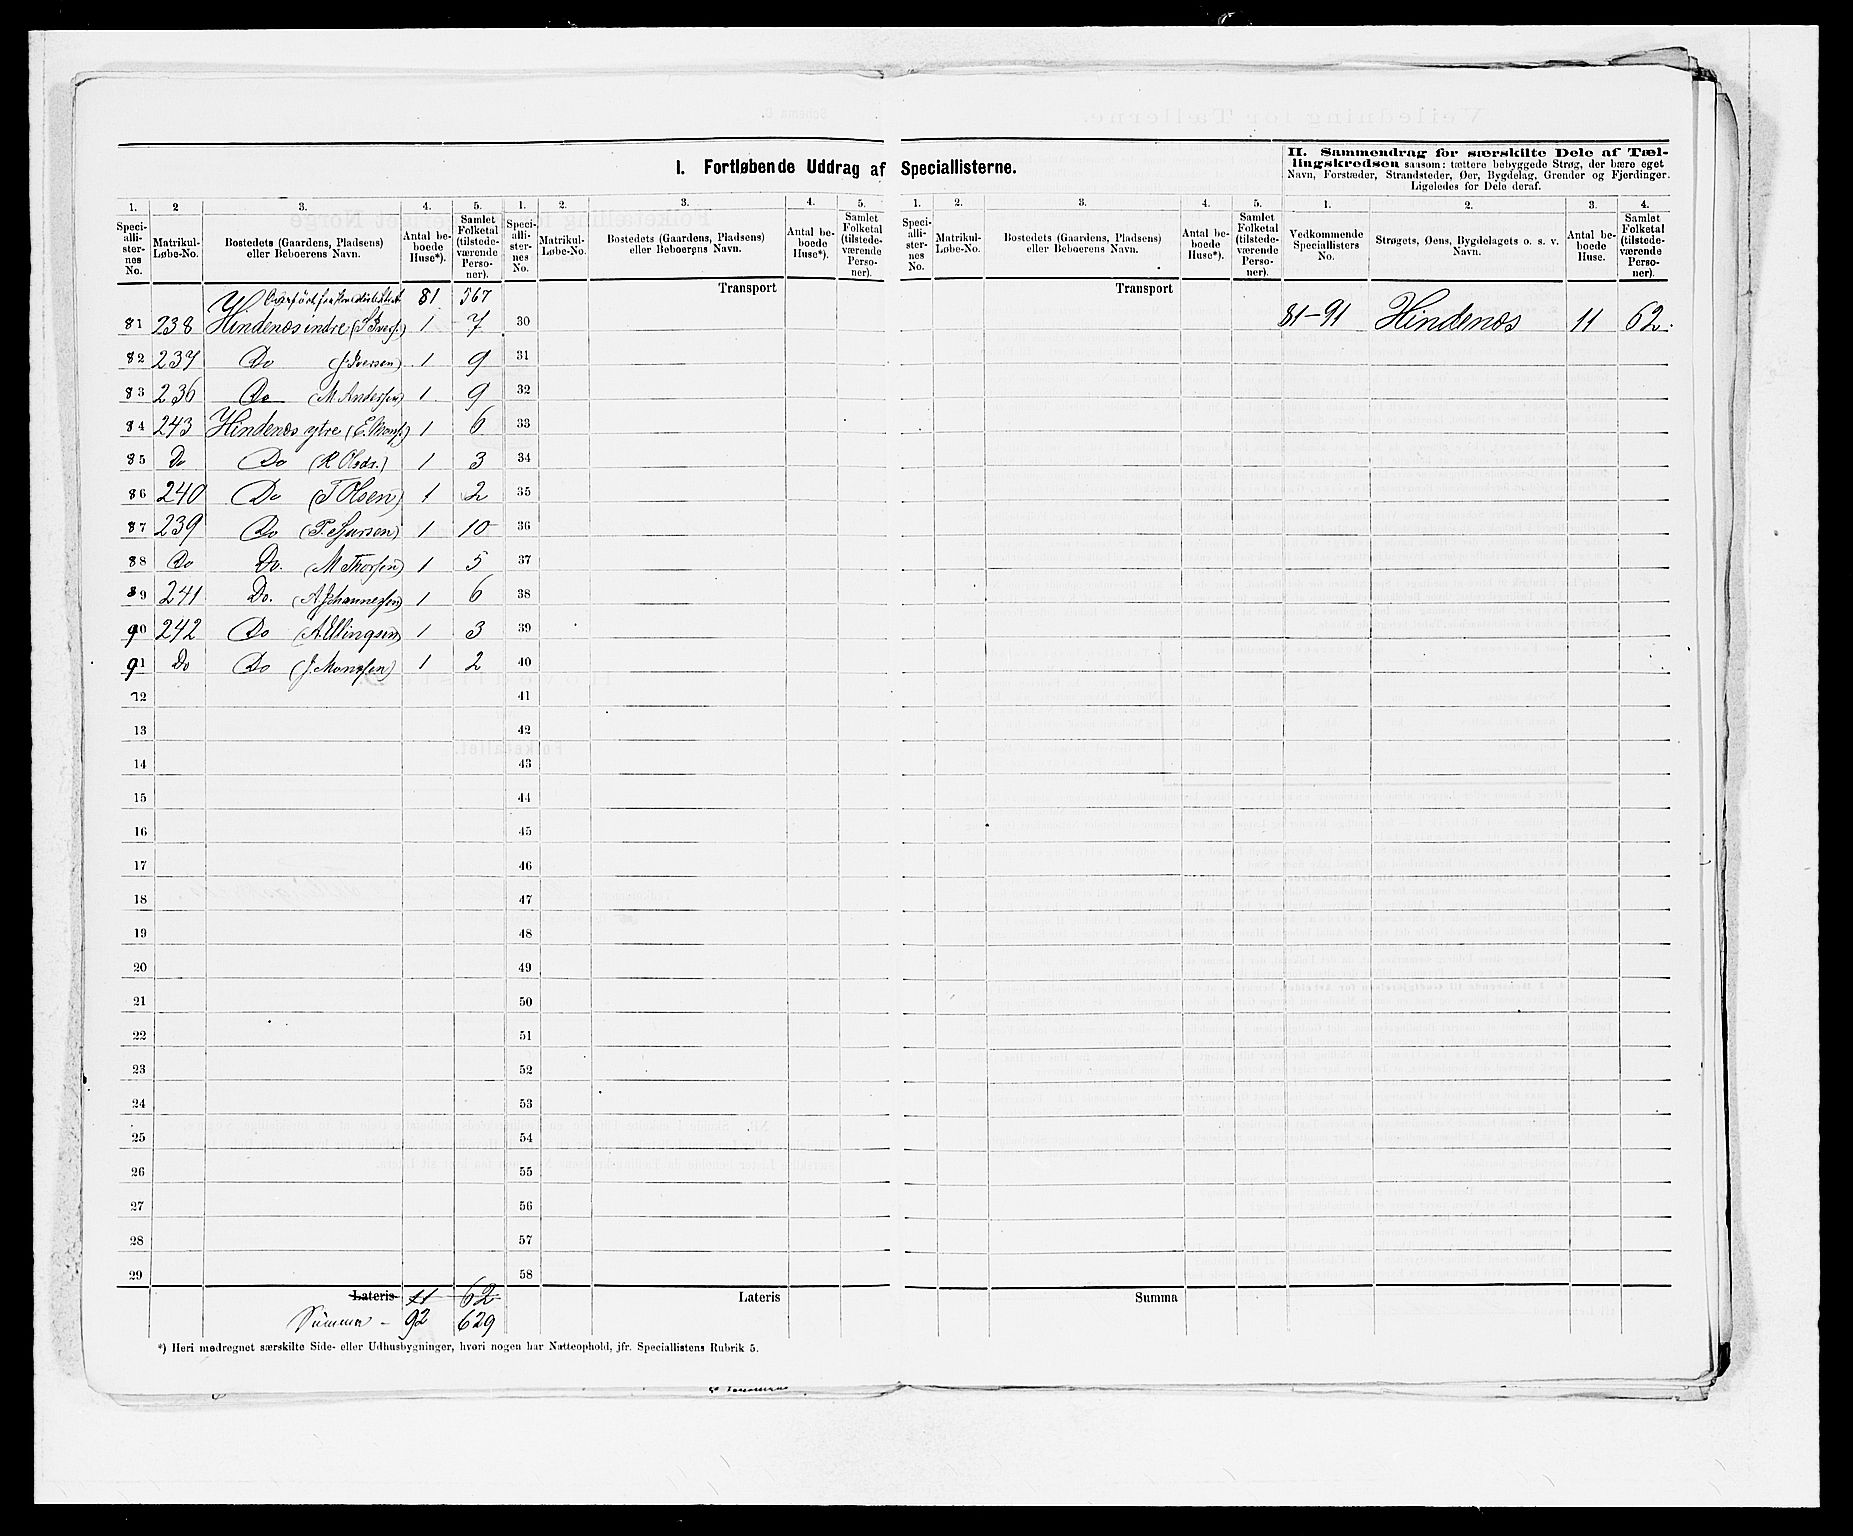 I. Fortløbende Uddrag af Speciallisterne.
II. Sammendrag for særskilte Dele af Tæl-
lingskredsen saasom: tættere bebyggede Strøg, der bære eget
Navn, Forstæder, Strandsteder, Øer, Bygdelag, Grender og Fjerdinger.
Ligeledes for Dele deraf.
1. 2 3. 4. 5. 1. 2. 3. 4. 5. 1. 2. 3. 4. 5. 1. 2. 3. 4.
Speciallisternes No. Matrikul-Løbe-No. Bostedets (Gaardens, Pladsens) eller Beboerens Navn. Antal beboede Huse*). Samlet Folketal (tilstedeværende Personer).
Speciallisternes No. Matrikul-Løbe-No. Bostedets (Gaardens, Pladsens) eller Beboerens Navn. Antal beboede Huse*). Samlet Folketal (tilstedeværende Personer).
Speciallisternes No. Matrikul-Løbe-No. Bostedets (Gaardens, Pladsens) eller Beboerens Navn. Antal beboede Huse*). Samlet Folketal (tilstedeværende Personer).
Vedkommende Speciallisters No. Strøgets, Øens, Bygdelagets o. s. v. Navn. Antal beboede Huse. Samlet Folketal (tilstedeværende Personer).
81 567 Transport Transport
81 238 Hindenæs indre (S Ivers.) 1 7 30 81-91 Hindenæs 11 62.
82 237 Do (J. Iversen) 1 9 31
83 236 Do (M Andersen) 1 9 32
84 243 Hindenæs ytre (E. Mons.) 1 6 33
85 Do Do (R Olsdr.) 1 3 34
86 240 Do (T Olsen) 1 2 35
87 239 Do (P. Sjursen) 1 10 36
88 Do Do. (M Thorsen) 1 5 37
89 241 Do. (A. Johannessen) 1 6 38
90 242 Do (A. Ellingsen) 1 3 39
91 Do Do (J. Monssen) 1 2 40
12 41
13 42
14 43
15 44
16 45
17 46
18 47
19 48
20 49
21 50
22 51
23 52
24 53
25 54
26 55
27 56
28 57
29 58
Lateris 11 62 Lateris Summa
Summa - 92 629
*) Heri medregnet særskilte Side- eller Udhusbygninger, hvori nogen har Natteophold, jfr. Speciallistens Rubrik 5.